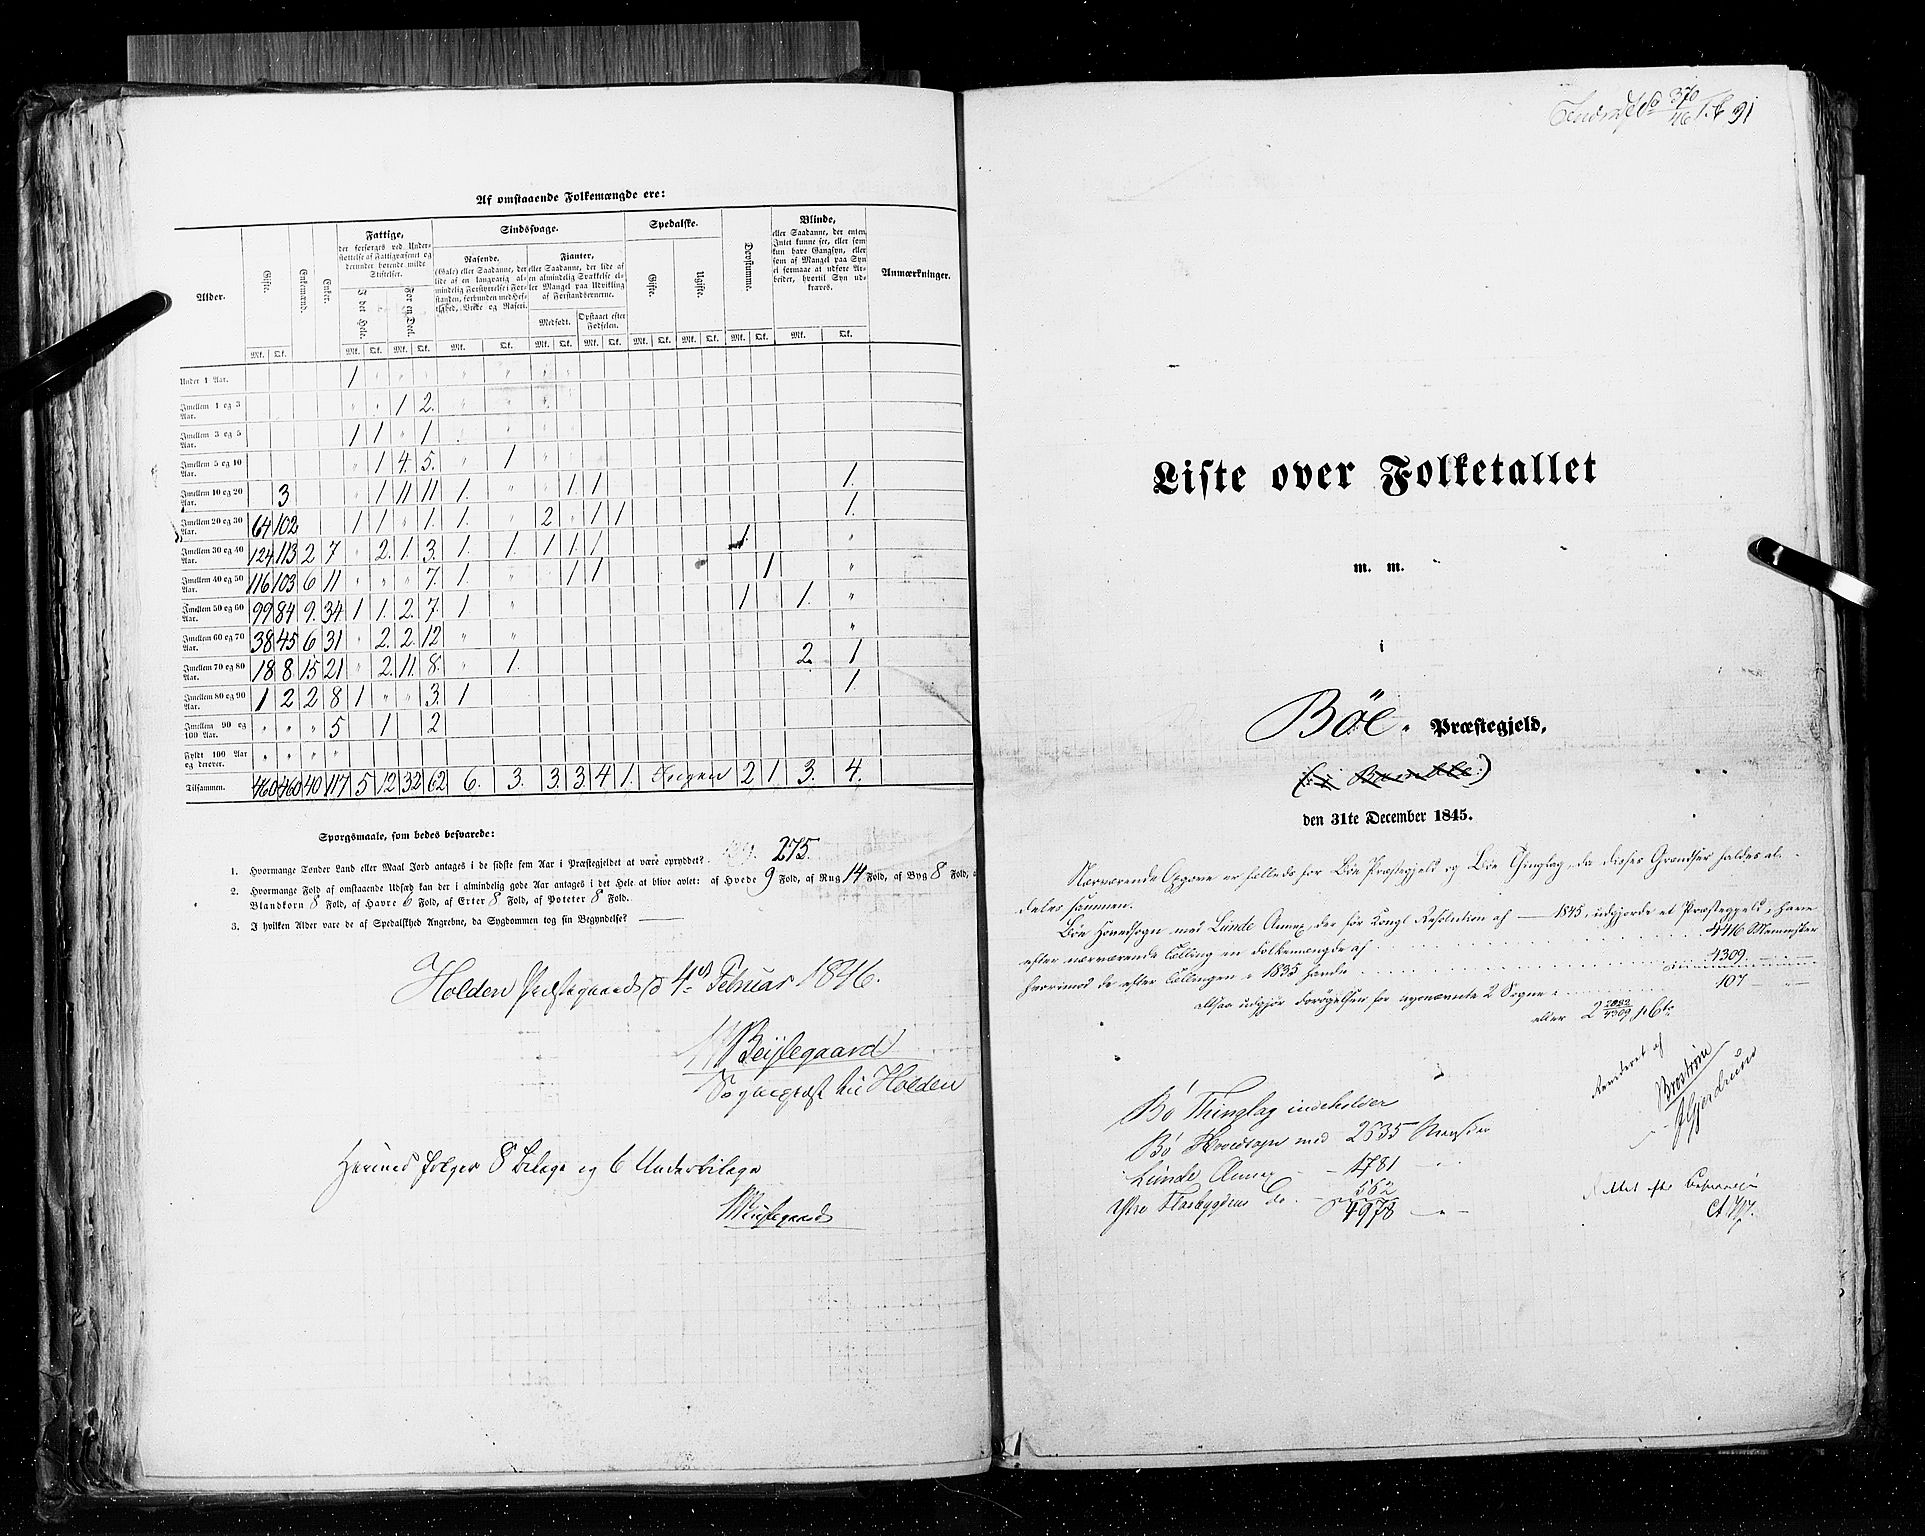 Af omstaaende Folkemængde ere:
Alder. Gifte. Enkemænd. Enker. Fattige, Sindssvage. Spedalske. Døvstumme. Blinde, Anmærkninger.
der forsørges ved Understøttelse af Fattigvæsenet og derunder hørende milde Stiftelser.
I det Hele. For en Deel.
Rasende. (Gale) eller Saadanne, der lide af en langvarig almindelig Forstyrrelse i Forstanden, forbunden med Heftighed, Vrede og Raseri.
Fianter, eller Saadanne, der lide af en almindelig Svækkelse eller Mangel paa Udvikling af Forstandsevnerne.
Medfødt. Opstaaet efter Fødselen.
Gifte. Ugifte.
eller Saadanne, der enten Intet kunne see, eller som kun have Gangsyn, eller som af Mangel paa Syn ei formaae at udføre Arbeider, hvortil Syn udkræves.
Mk. Qk. Mk. Qk. Mk. Qk. Mk. Qk. Mk. Qk. Mk. Qk. Mk. Qk. Mk. Qk. Mk. Qk. Mk. Qk.
Under 1 Aar. 1 " " " " " " "
Imellem 1 og 3 Aar. " " 1 2. " " "
Imellem 3 og 5 Aar. 1 1 " 1 " "
Imellem 5 og 10 Aar. " 1 4. 5. " 1 "
Imellem 10 og 20 Aar. 3 " 1 11 11 1. " 1 1 1.
Imellem 20 og 30 Aar. 64 102 1 1 " 1. 1. " 2 " 1 1 1.
Imellem 30 og 40 Aar. 124 113 2 7 " 2. 1. 3. 1. 1. 1 1. 1 1. "
Imellem 40 og 50 Aar. 116 103 6 11 " " " 7. 1. " 1 1 1 "
Imellem 50 og 60 Aar. 99 84 9. 34 1 1. 2. 7. 1 " 1 1. "
Imellem 60 og 70 Aar. 38 45 6 31 " 2. 2. 12 " " "
Imellem 70 og 80 Aar. 18 8 15 21 " 2. 11. 8. " 1. 2. 1
Imellem 80 og 90 Aar. 1 2 2 8 1 " " 3. 1 1.
Imellem 90 og 100 Aar. " " " 5 1 2
Fyldt 100 Aar og derover. " " " "
Tilsammen. 460 460 40 117 5 12 32 62 6. 3. 3. 3. 4 1. Ingen 2 1 3. 4.
Spørgsmaale, som bedes besvarede:
1. Hvormange Tønder Land eller Maal Jord antages i de sidste fem Aar i Præstegjeldet at være opryddet? 275.
2. Hvormange Fold af omstaaende Udsæd kan der i almindelig gode Aar antages i det Hele at blive avlet: af Hvede 9 Fold, af Rug 14 Fold, af Byg 8 Fold, a
Blandkorn 8 Fold, af Havre 6 Fold, af Erter 8 Fold, af Poteter 8 Fold.
3. I hvilken Alder vare de af Spedalskhed Angrebne, da Sygdommen tog sin Begyndelse?
Holden Præstegaard d 4de Februar 1846.
Beijlegaard
Sognepræst til Holden
Herved følger 8 Bilage og 6 Underbilage
370
46
91
Liste over Folketallet
m. m.
i
Böe Præstegjeld,
(i Bamble)
den 31te December 1845.
Nærværende Opgave er fælleds for Böe Præstegjeld og Böe Thinglag, da disses Grændser falde al-
deles sammen.
Böe Hovedsogn med Lunde Annex, der før Kongl Resolution af 1845, udgjorde et Præstegjeld, have
efter nærværende Tælling en Folkemængde af 4416 Mennesker
hvorimod de efter Tællingen i 1835 havde 4309
altsaa udgjør Forøgelsen for ovennævnte 2 Sogne 107
eller 2 2082/4309 pCto
Revideret af
Broström
Gjerdrum
Bö Thinglag indeholder
Bö Hovedsogn med 2635 Mensker
Lunde Annex 1781
562
4978